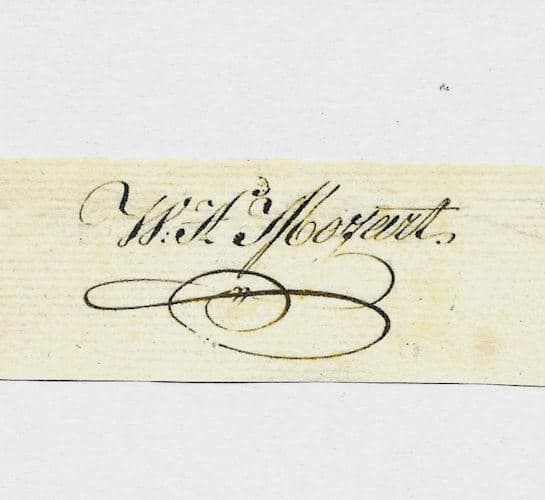 W. A. Mozart.